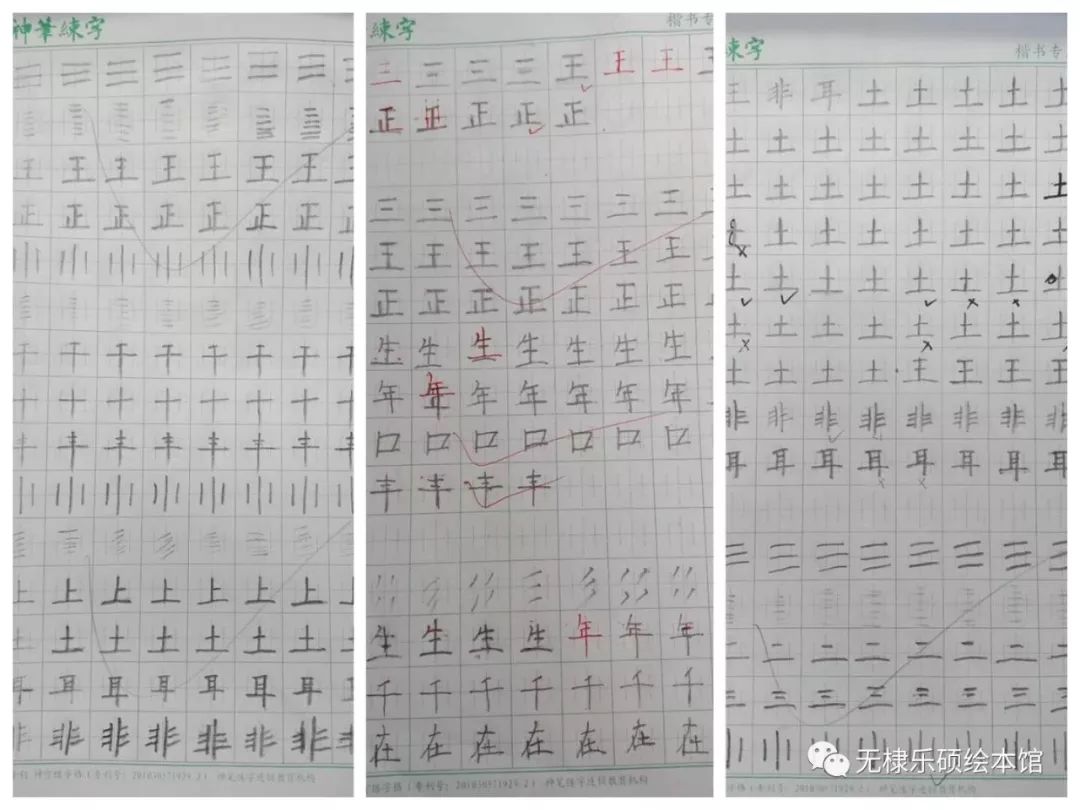 神筆練字
王 王 王 王 王 王 王
正 正 正 正 正 正 正 正
干 干 干 干 干 干 干
十 十 十 十 十 十 十
丰 丰 丰 丰 丰 丰 丰
上 上 上 上 上 上 上
土 土 土 土 土 土 土
耳 耳 耳 耳 耳 耳 耳
非 非 非 非 非 非 非
練字
楷书专
三 三 三 三 王 王 王
正 正 正 正 正
三 三 三 三 三 三 三
王 王 王 王 王 王 王
正 正 正 正 正 正 正
生 生 生 生 生 生 生
年 年 年 年 年 年 年
口 口 口 口 口 口 口
丰 丰 丰 丰
生 生 生 生 年 年 年
千 千 千 千 千 千 千
在 在 在 在 在 在 在
练字
楷书专
王 非 耳 土 土 土 土 土
土 土 土 土 土 土 土 土
土 土 土 土 土 土 土 土
土 土 土 土 土 土 土
土 土 土 土 土 土 土
土 土 土 土 土 土 土 土
土 土 土 土 王 王 王 王
非 非 非 非 非 非 非 非
耳 耳 耳 耳 耳 耳 耳 耳
二 二 二 二 二 二 二 二
三 三 三 三 三 三 三 三
无棣乐硕绘本馆